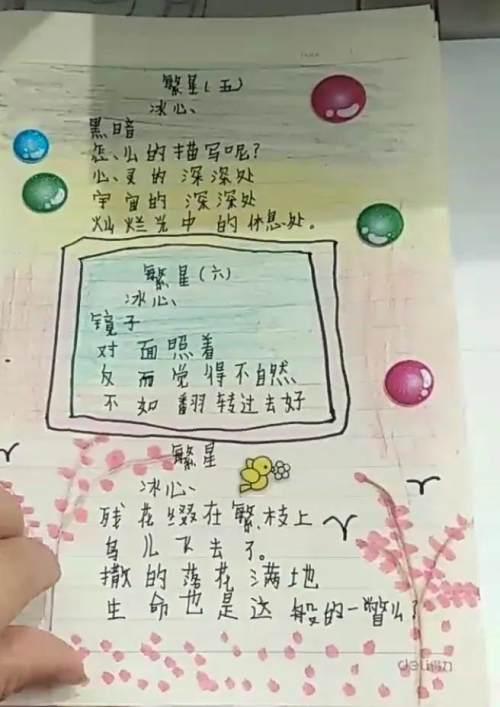 繁星(五)
冰心、
黑暗
怎、么的描写呢?
心、灵的深深处
宇宙的深深处
灿烂光中的休息处。
繁星(六)
冰心、
镜子
对面照着
反而觉得不自然
不如翻转过去好
繁星
冰心、
残花缀在繁枝上
鸟儿飞去了。
撒的落花满地
生命也是这般的一瞥么?
deli得力